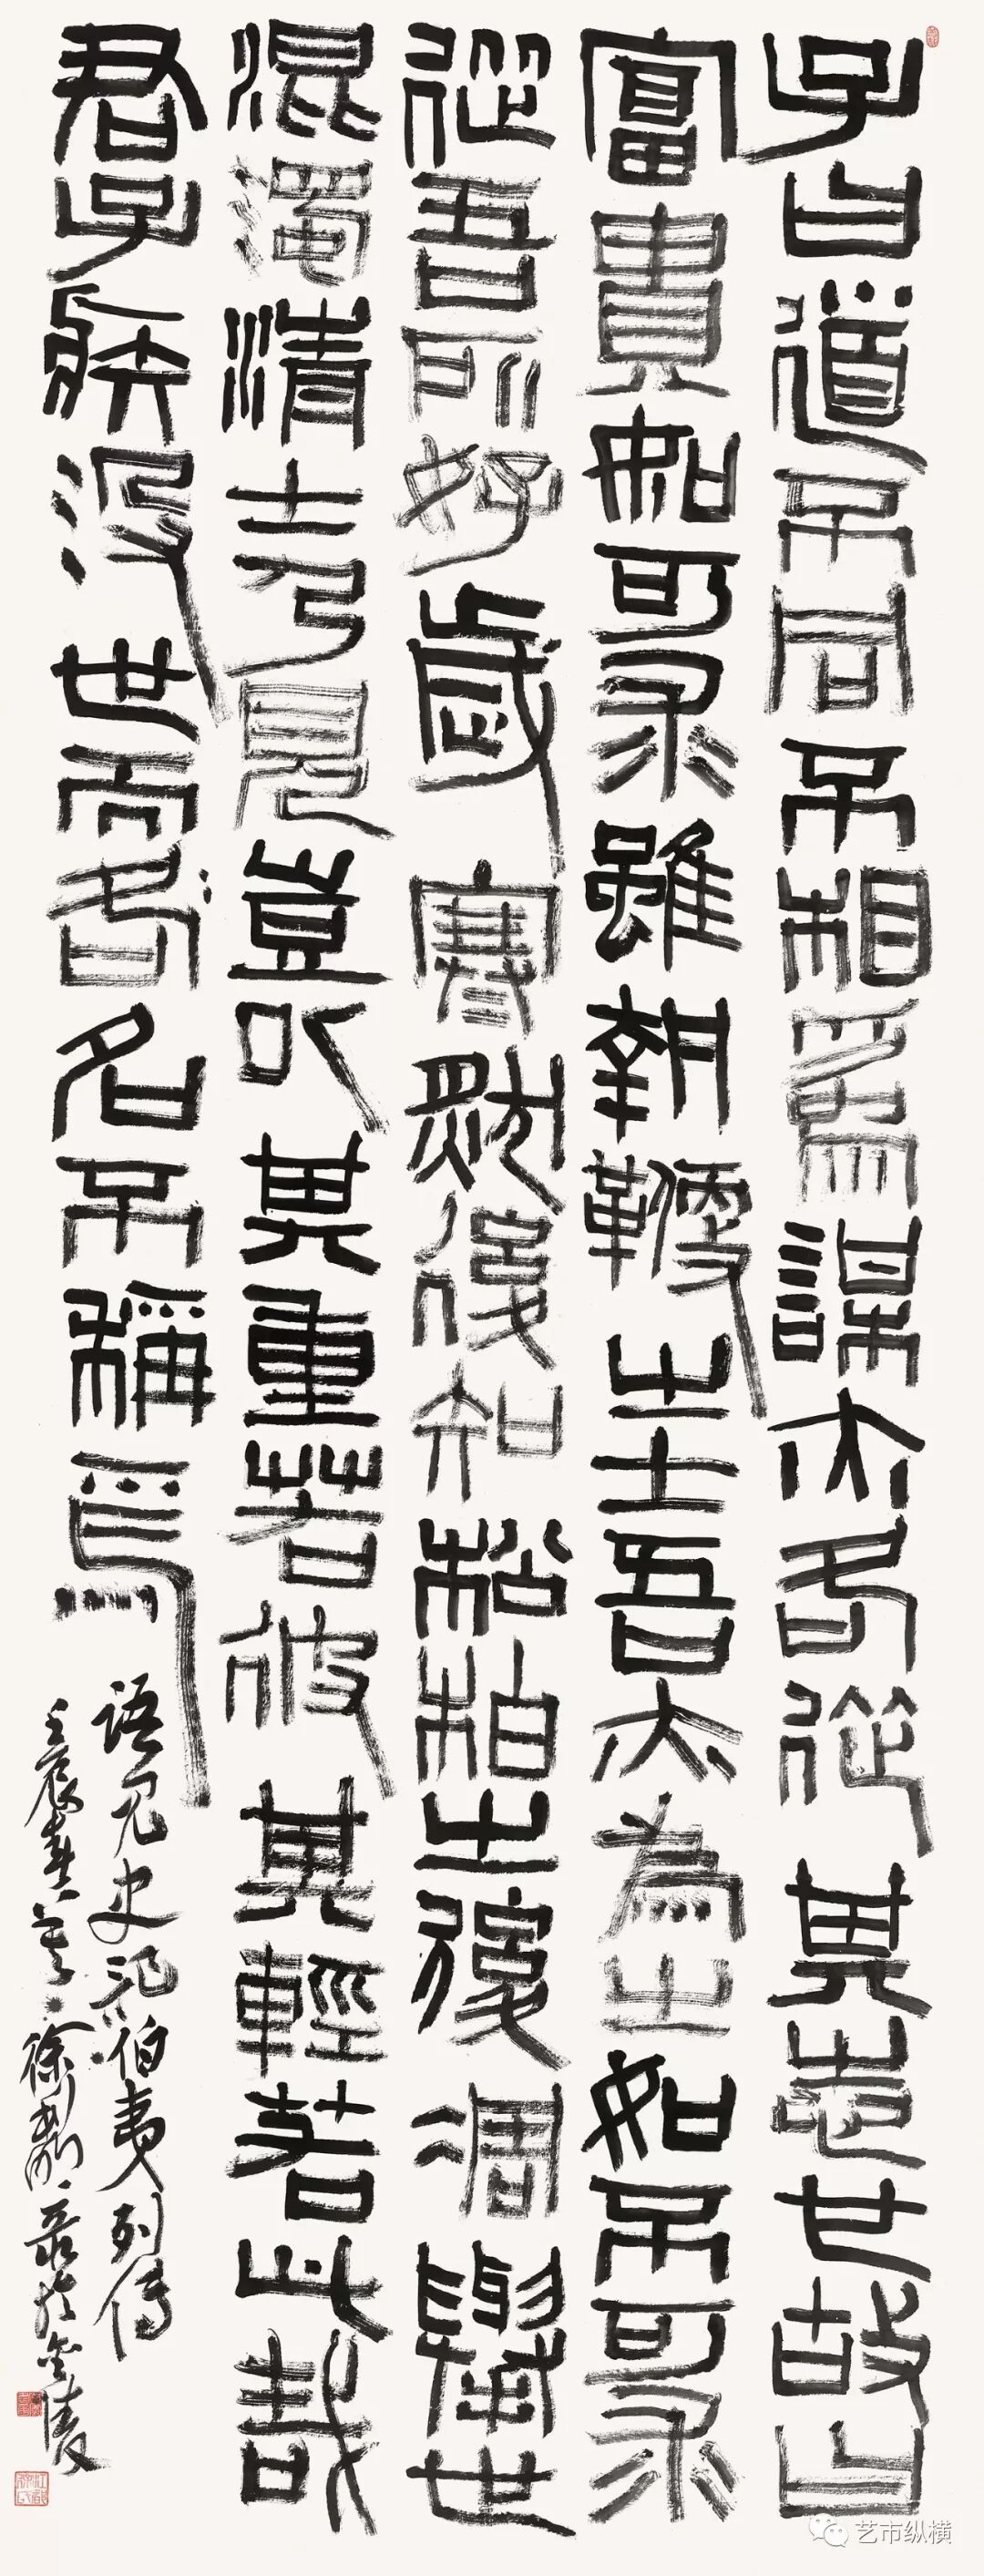 子曰道不同不相為謀亦各從其志也故曰
富貴如可求雖執鞭之士吾亦為之如不可求
從吾所好歲寒然後知松柏之後凋舉世
混濁清士乃見豈以其重若彼其輕若此哉
君子疾没世而各名不稱焉
语见史记伯夷列传
壬辰春徐利明录於金陵
艺市纵横